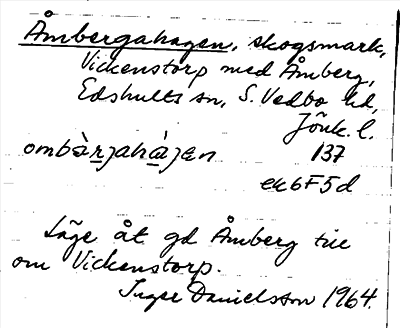 Åmbergahagen, skogsmark,
Vickenstorp med Åmberg,
Edshults sn, S. Vedbo hd,
Jönk. l.
ombàrjahàjen 137
ek6F5d
Läge åt gd Åmberg till
om Vickenstorp.
Inger Danielsson 1964.